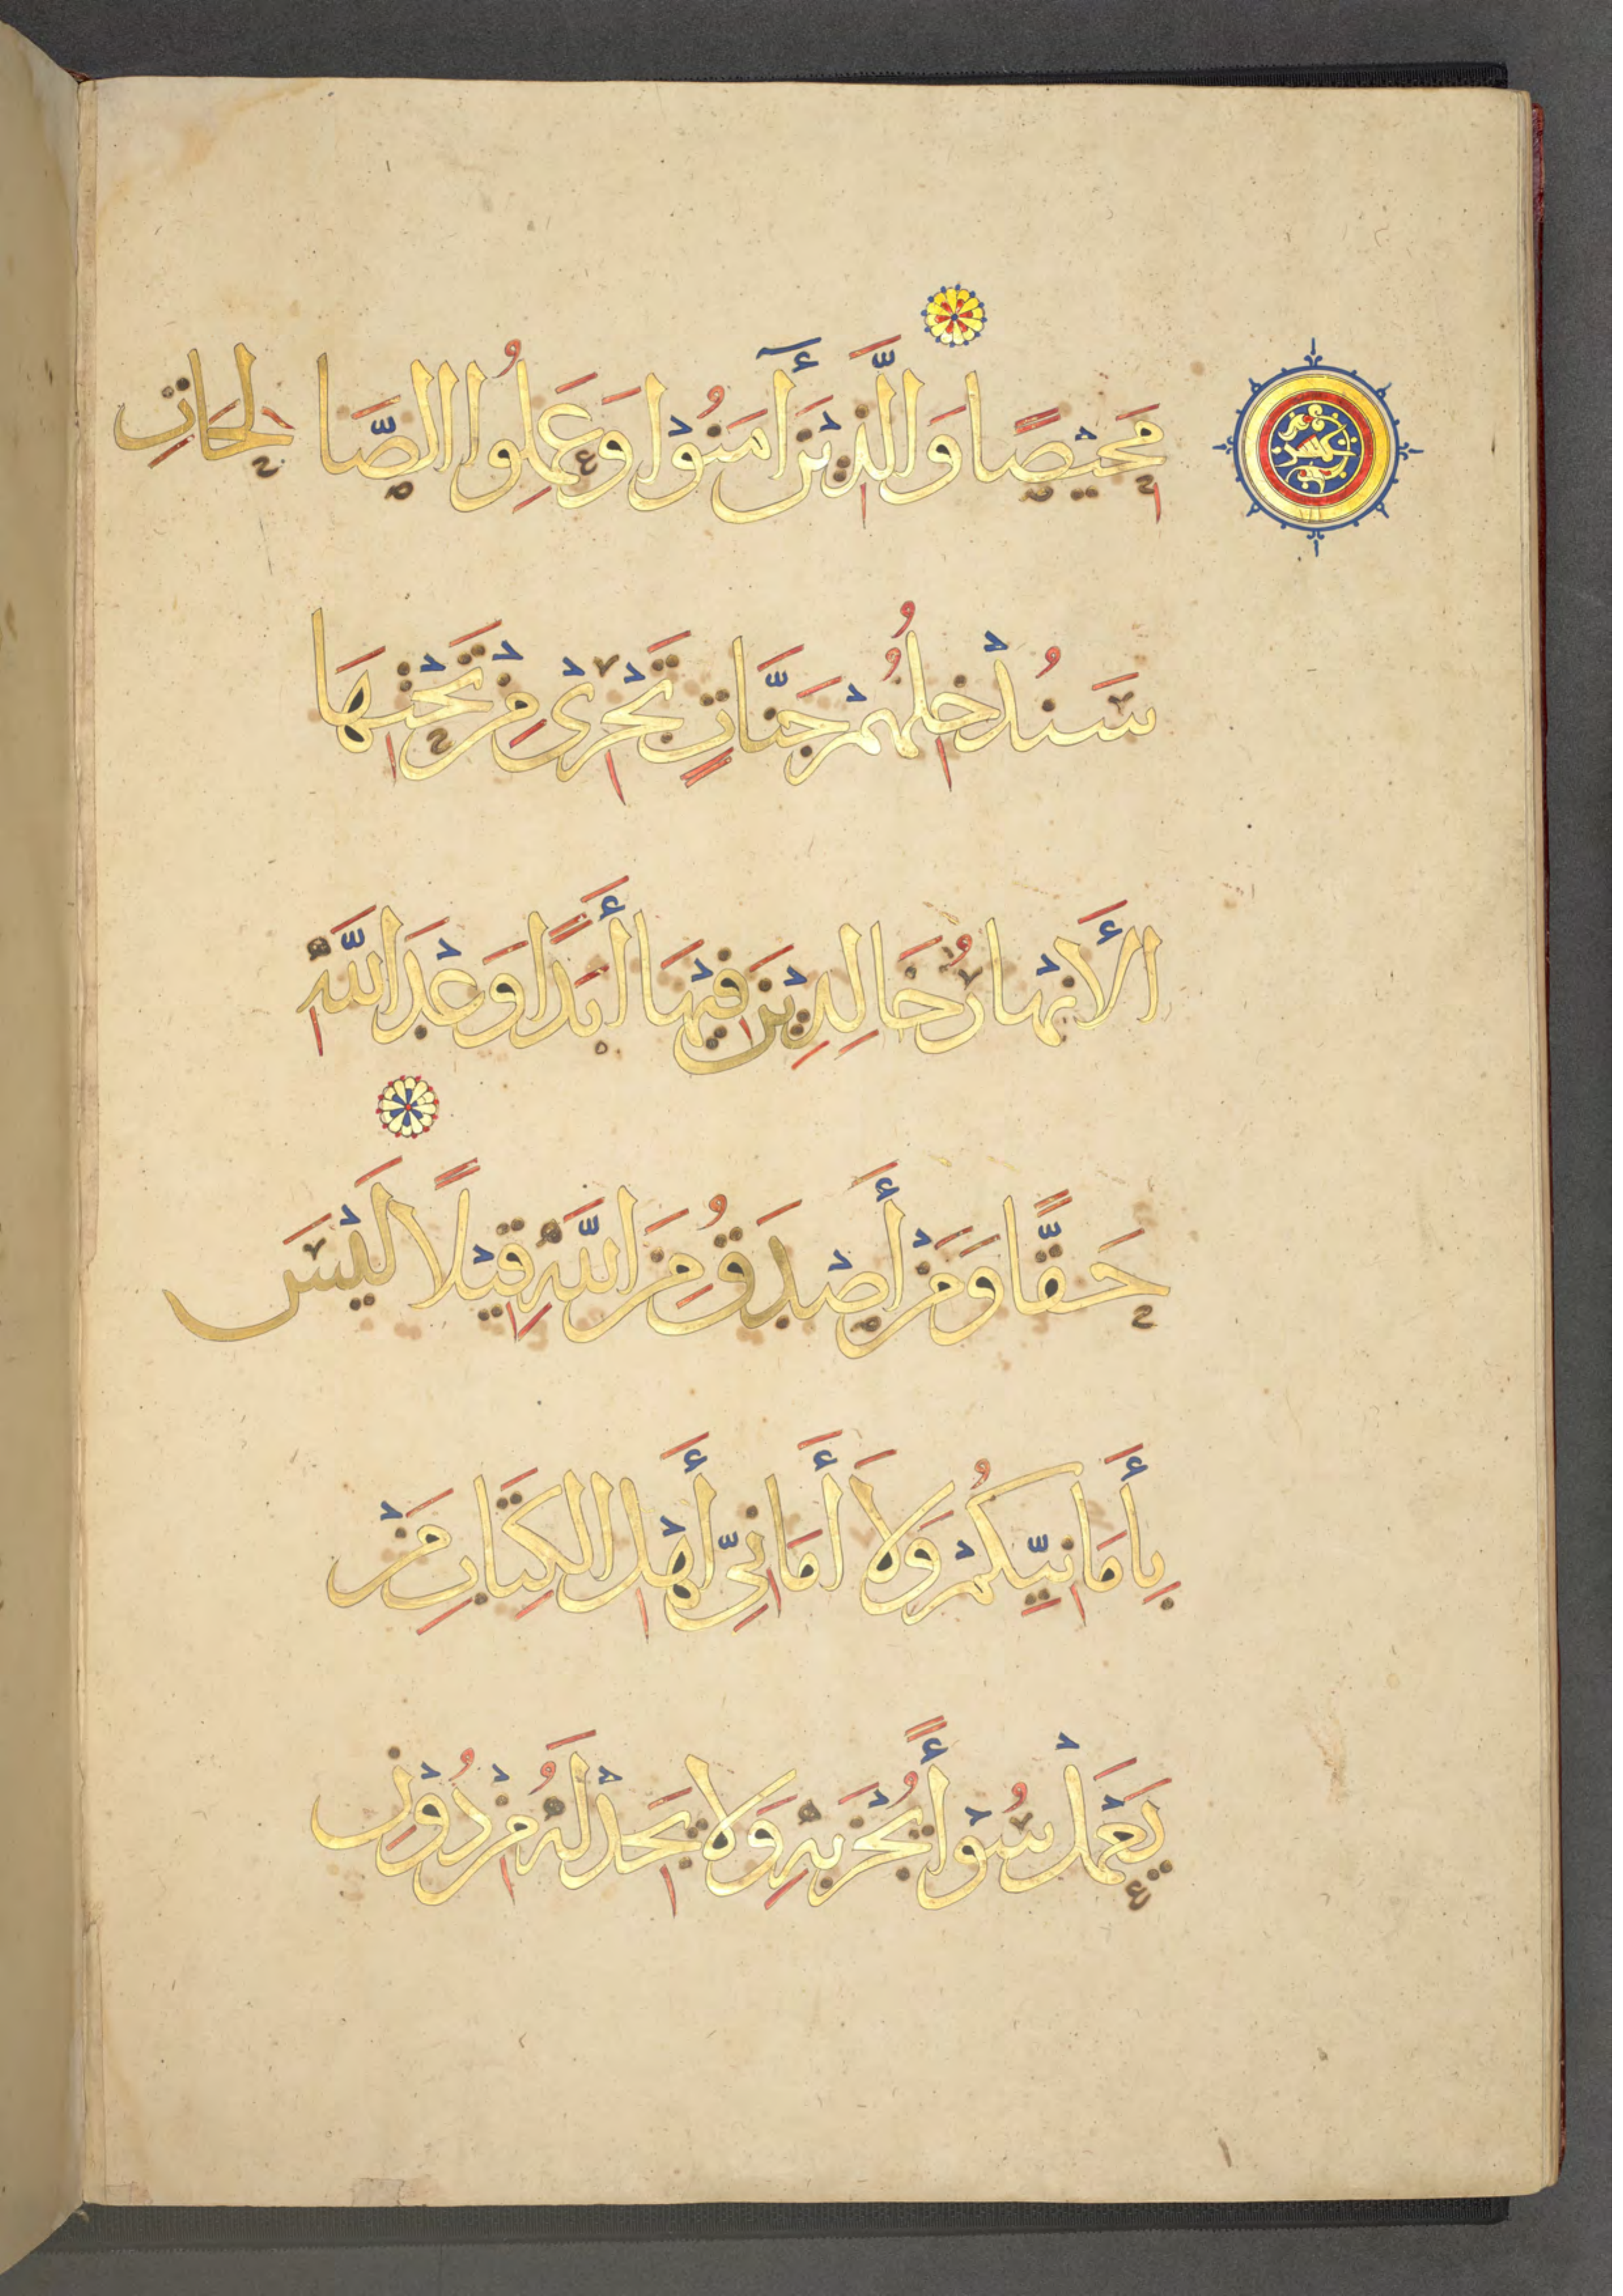 مَحِيْصًا وَالَّذِيْنَ أٓمَنُوْا وَعَمِلُوا الصَّالِحَاتِ
سَنُدْخِلُهُمْ جَنَّاتٍ تَجْرِىْ مِنْ تَحْتِهَا
الأَنْهَارُ خَالِدِيْنَ فِيْهَا أَبَدًا وَعْدَ اللَّهِ
حَقًّا وَمَنْ أَصْدَقُ مِنَ اللَّهِ قِيْلًا لَيْسَ
بِأَمَانِيِّكُمْ وَلَا أَمَانِىِّ أَهْلِ الكِتَابِ مَنْ
يَعْمَلْ سُوْأً يُجْزَ بِهِ وَلَا يَجِدْ لَهُ مِنْ دُوْنِ